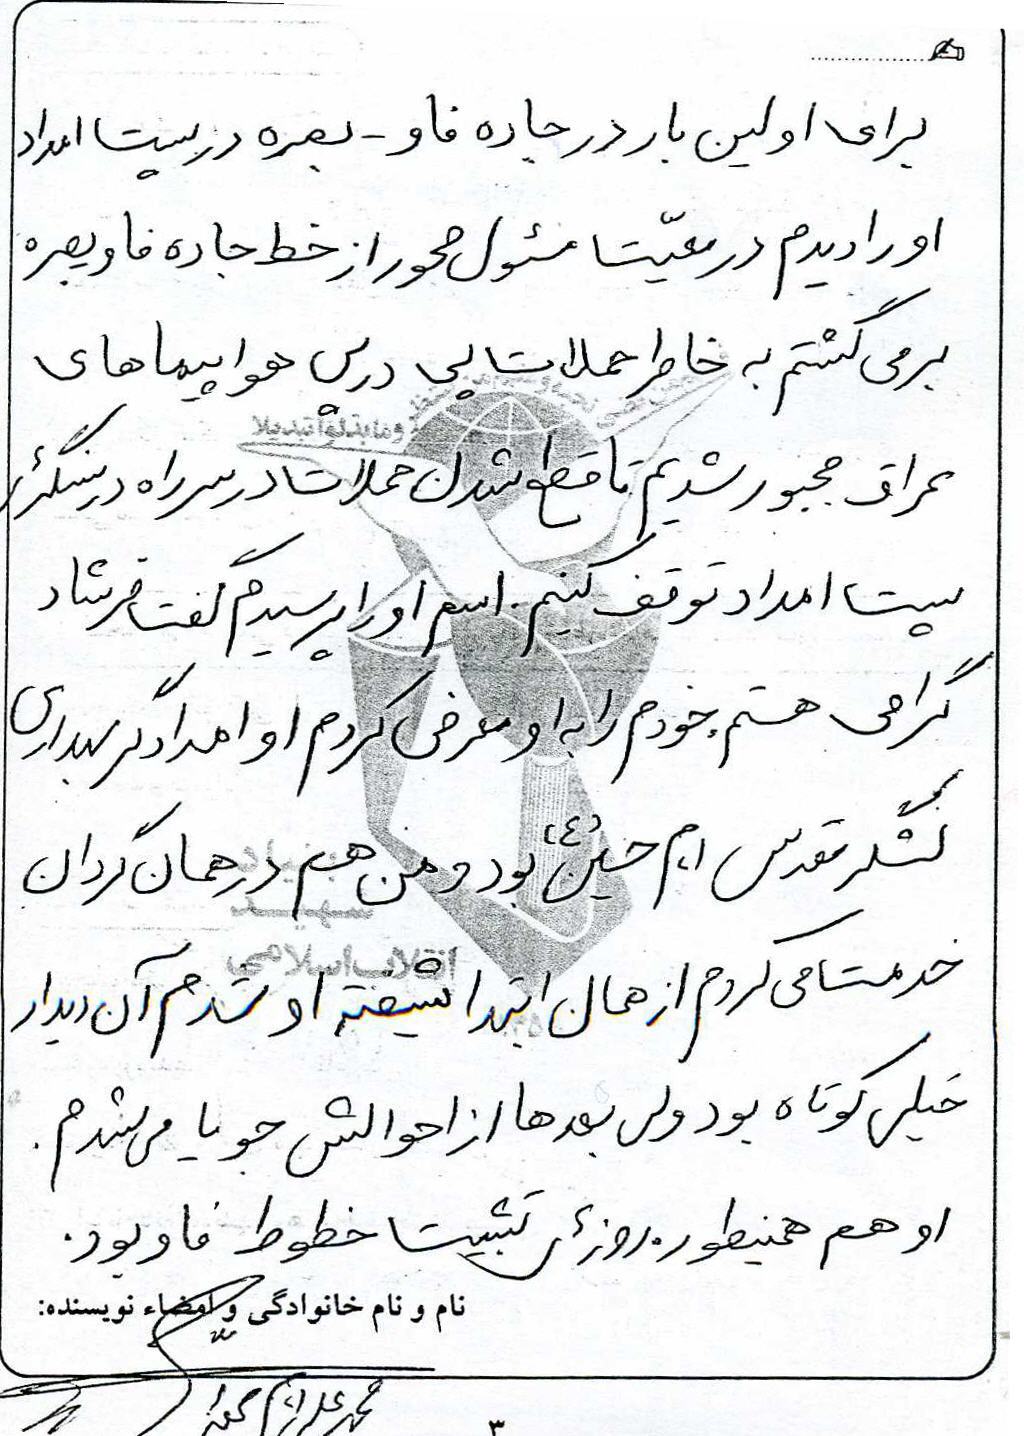 برای اولین بار در جاده فاو - بصره در پست امداد
او را دیدم در معیّت مسئول محور از خط جاده فاو بصره
برمی گشتم به خاطر حملات پی درپی هواپیماهای
عراق مجبور شدیم تا قطع شدن حملات در سر راه در سنگر
پست امداد توقف کنیم. اسم او را پرسیدم گفت فرشاد
گرامی هستم خودم را به او معرفی کردم او امدادگر بهداری
لشگر مقدس امام حسین (ع) بود و من هم در همان گردان
خدمت می کردم از همان ابتدا شیفته او شدم آن دیدار
خیلی کوتاه بود ولی بعدها از احوالش جویا می شدم.
او هم همینطور. روزهای تثبیت خطوط فاو بود.
وما بدلوا تبدیلا
بنیاد
شهید
انقلاب اسلامی
نام و نام خانوادگی و امضاء نویسنده:
محمد علی
۳